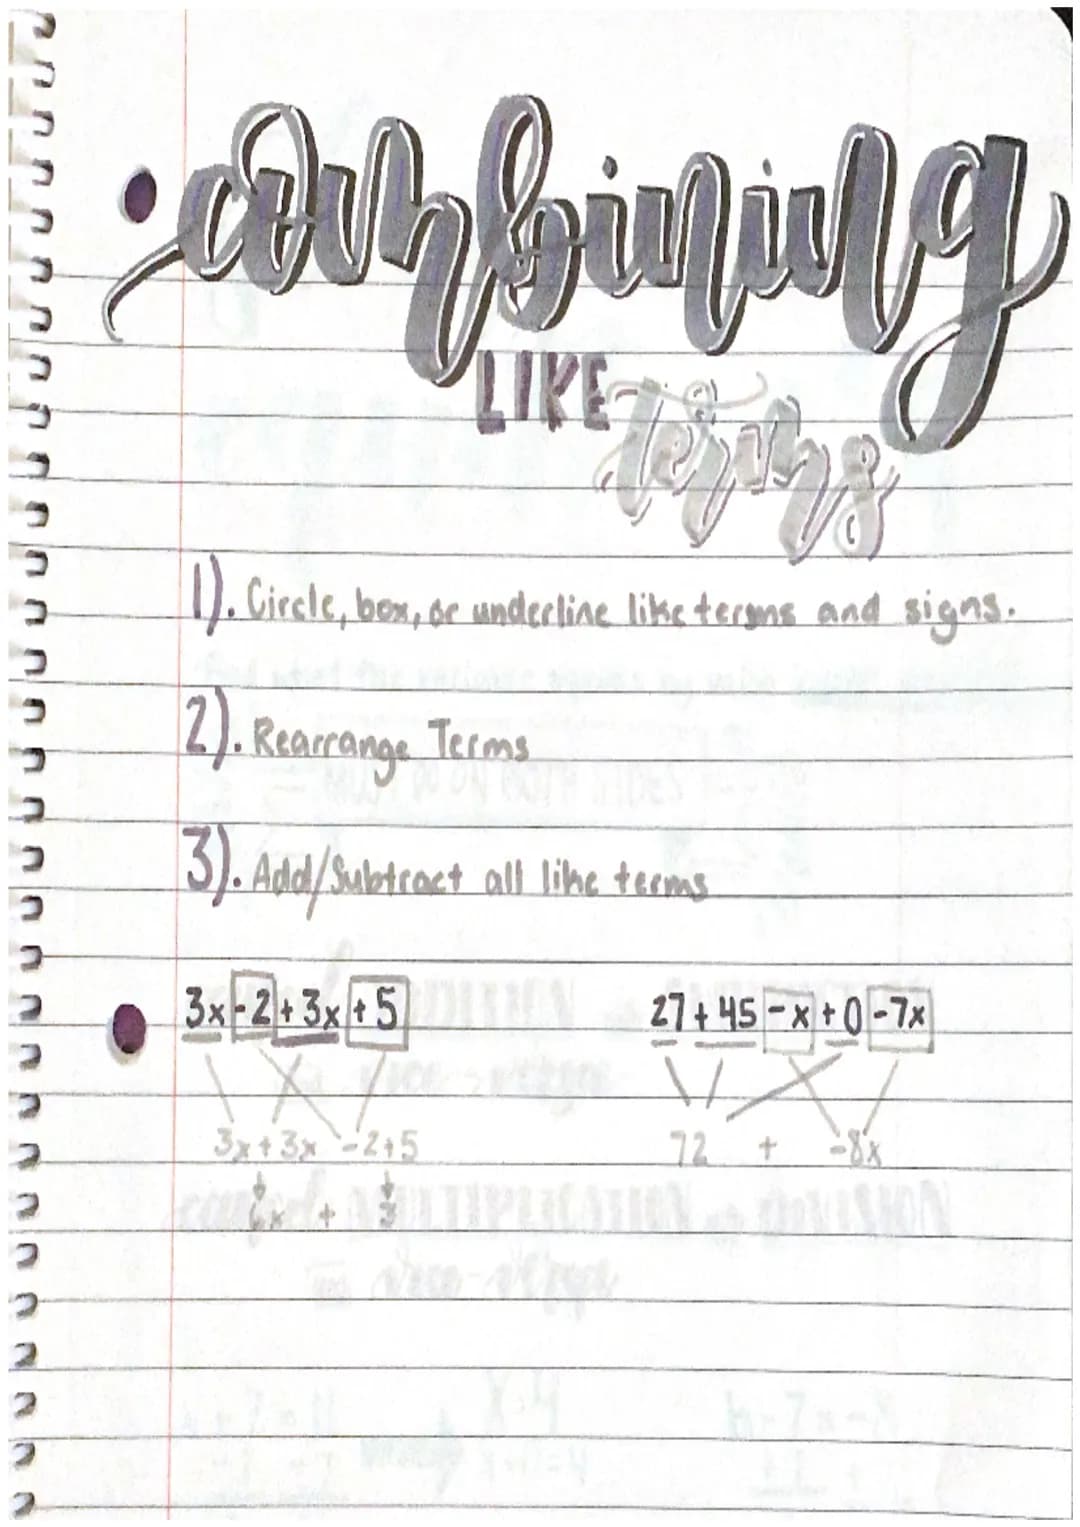 combining
LIKE terms
1). Circle, box, or underline like terms and signs.
2). Rearrange Terms
3). Add/Subtract all like terms
3x -2 + 3x + 5
27 + 45 -x + 0 -7x
3x + 3x -2+5
72 + -8x
6x + 3